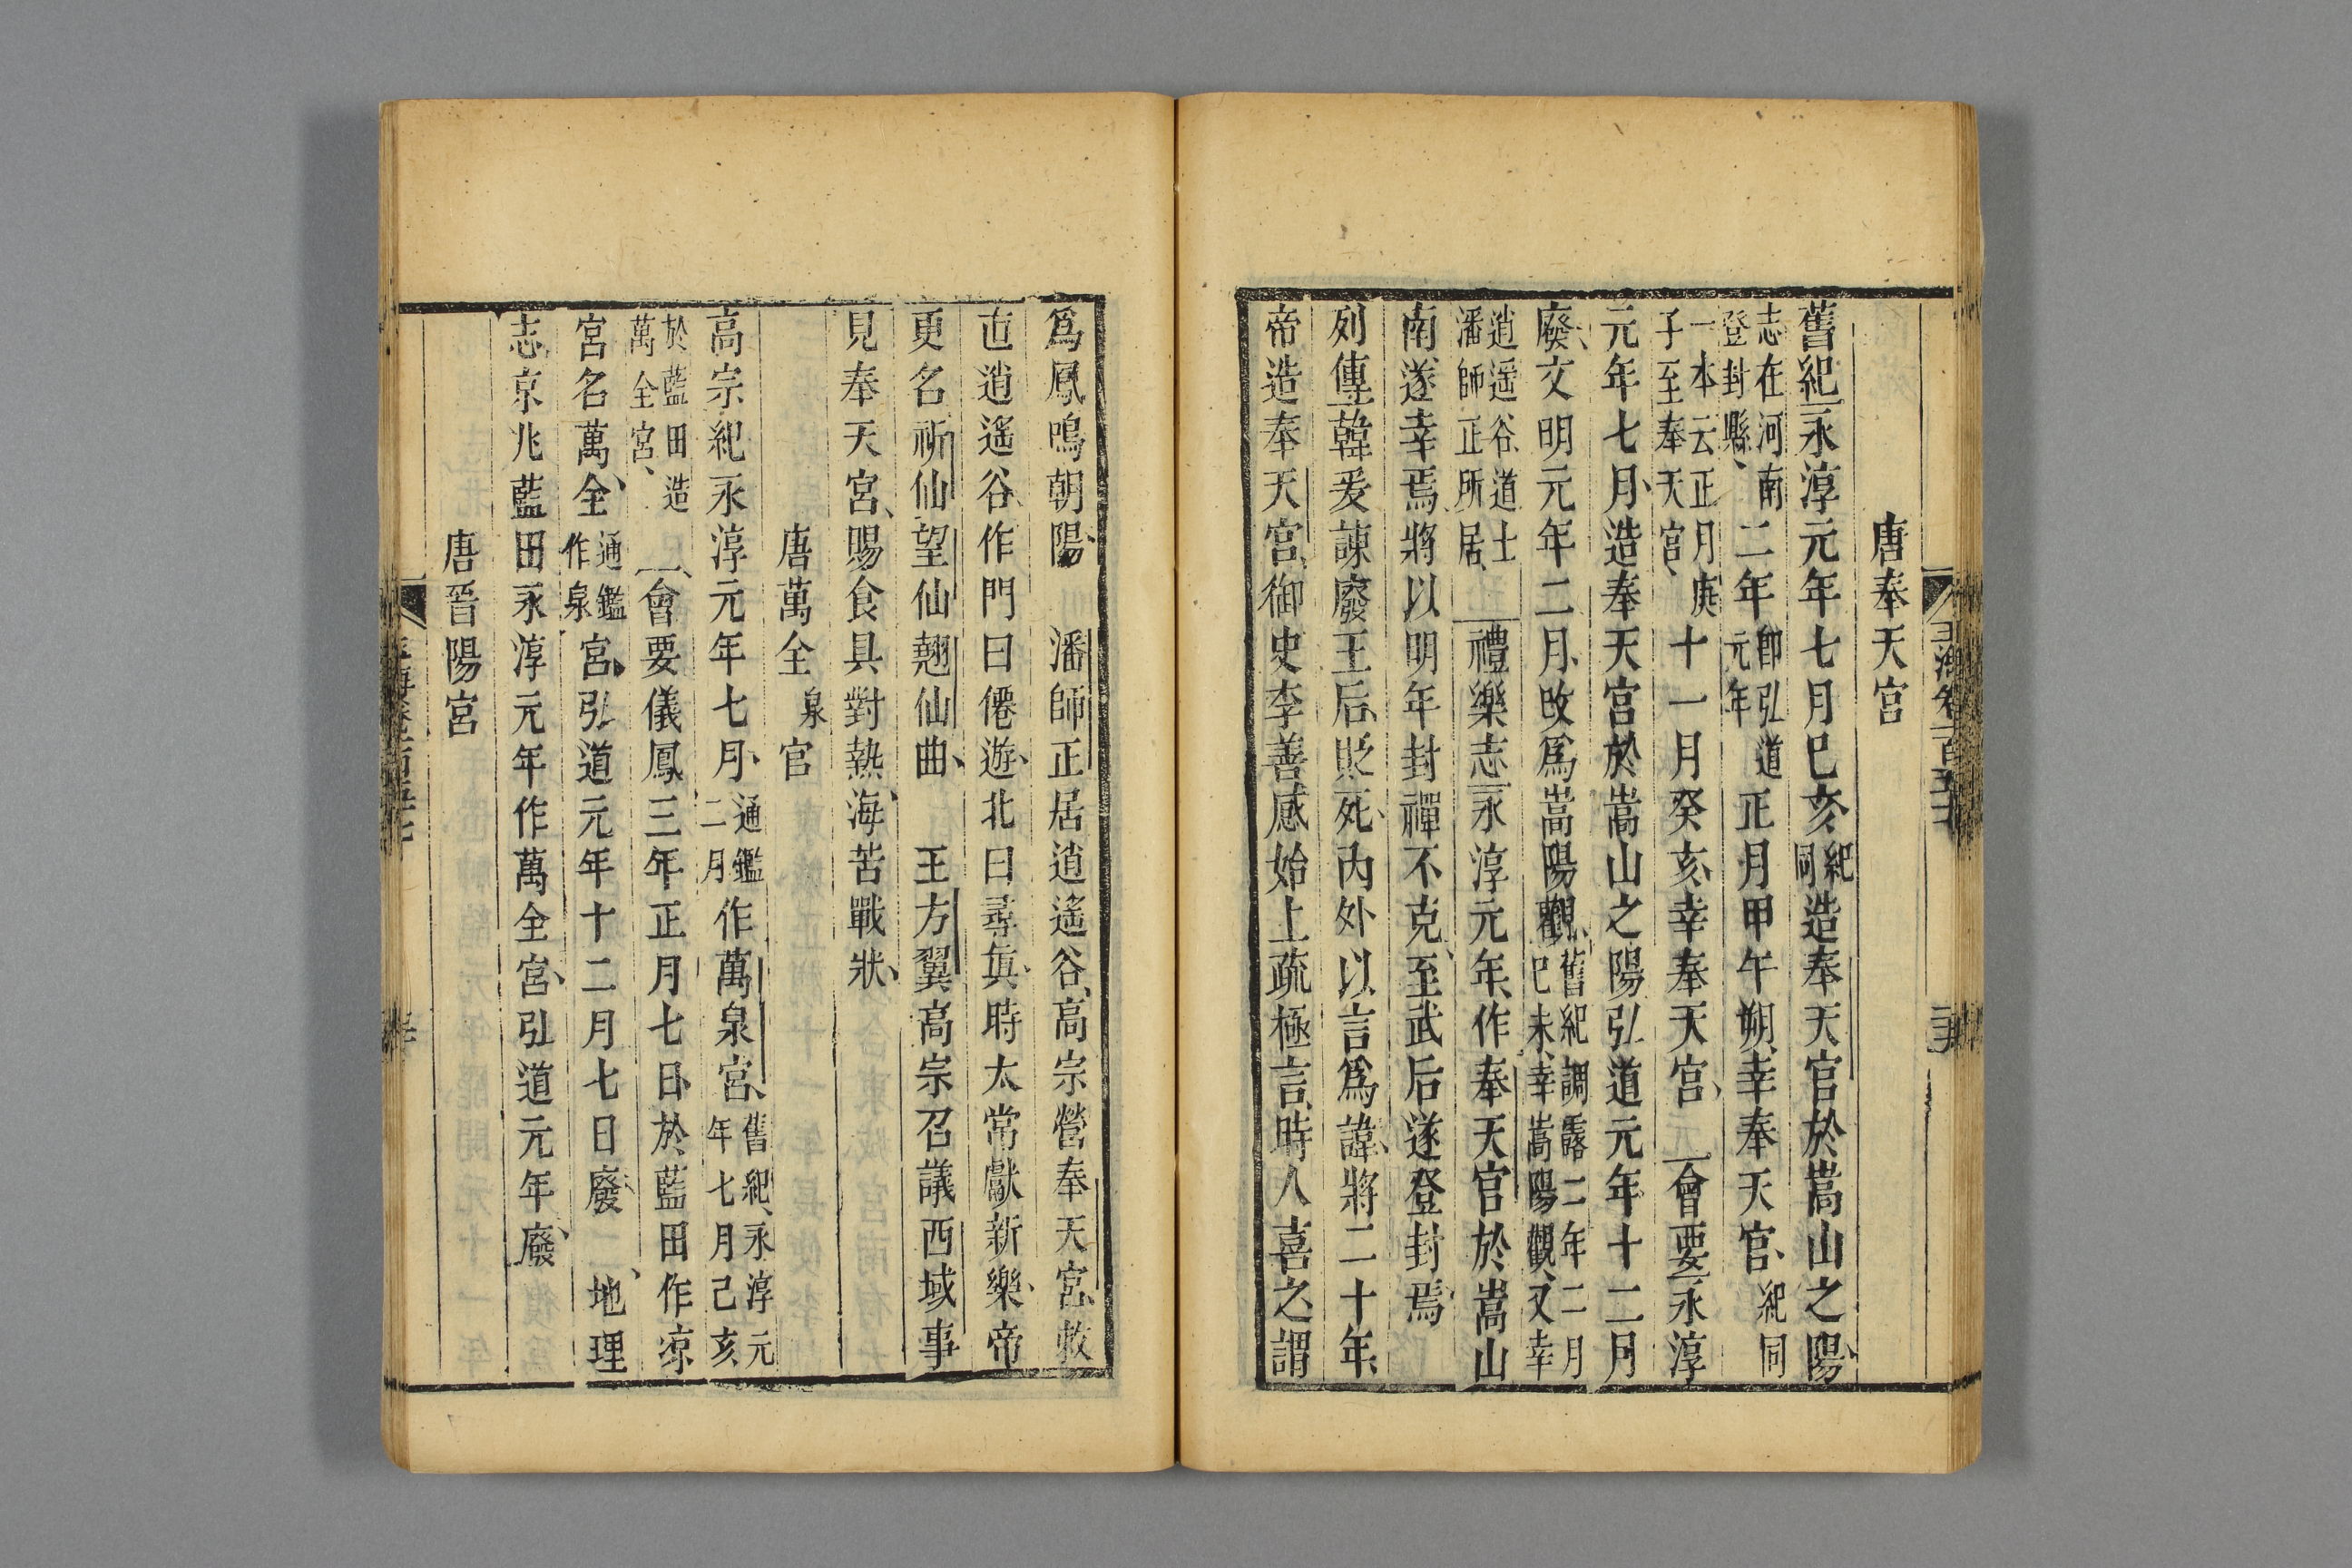 唐奉天宮
舊紀永淳元年七月已亥紀同造奉天宮於嵩山之陽
志在河南登封縣二年卽弘道元年正月甲午朔幸奉天宮紀同
一本云正月庚子至奉天宮十一月癸亥幸奉天宮會要永淳
元年七月造奉天宮於嵩山之陽弘道元年十二月
廢文明元年二月改爲嵩陽觀舊紀調露二年二月已未幸嵩陽觀又幸
逍遥谷道士潘師正所居禮樂志永淳元年作奉天宮於嵩山
南遂幸焉將以明年封禪不克至武后遂登封焉
列傳韓爰諫廢王后貶死内外以言爲諱將二十年
帝造奉天宮御史李善感始上疏極言時人喜之謂
爲鳳鳴朝陽潘師正居逍遙谷高宗營奉天宮敕
直逍遙谷作門曰僊遊北曰尋眞時太常獻新樂帝
更名祈仙望仙翹仙曲王方翼高宗召議西域事
見奉天宮賜食具對熱海苦戰狀
唐萬全泉宮
高宗紀永淳元年七月通鑑二月作萬泉宮舊紀永淳元年七月己亥
於藍田造萬全宮會要儀鳳三年正月七日於藍田作凉
宮名萬全通鑑作泉宮弘道元年十二月七日廢地理
志京兆藍田永淳元年作萬全宮弘道元年廢
唐晉陽宮